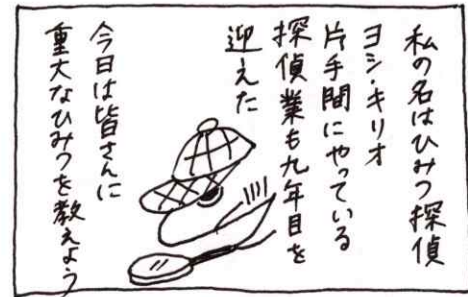 私の名はひみつ探偵
ヨシ・キリオ
片手間にやっている
探偵業も九年目を
迎えた
今日は皆さんに
重大なひみつを教えよう